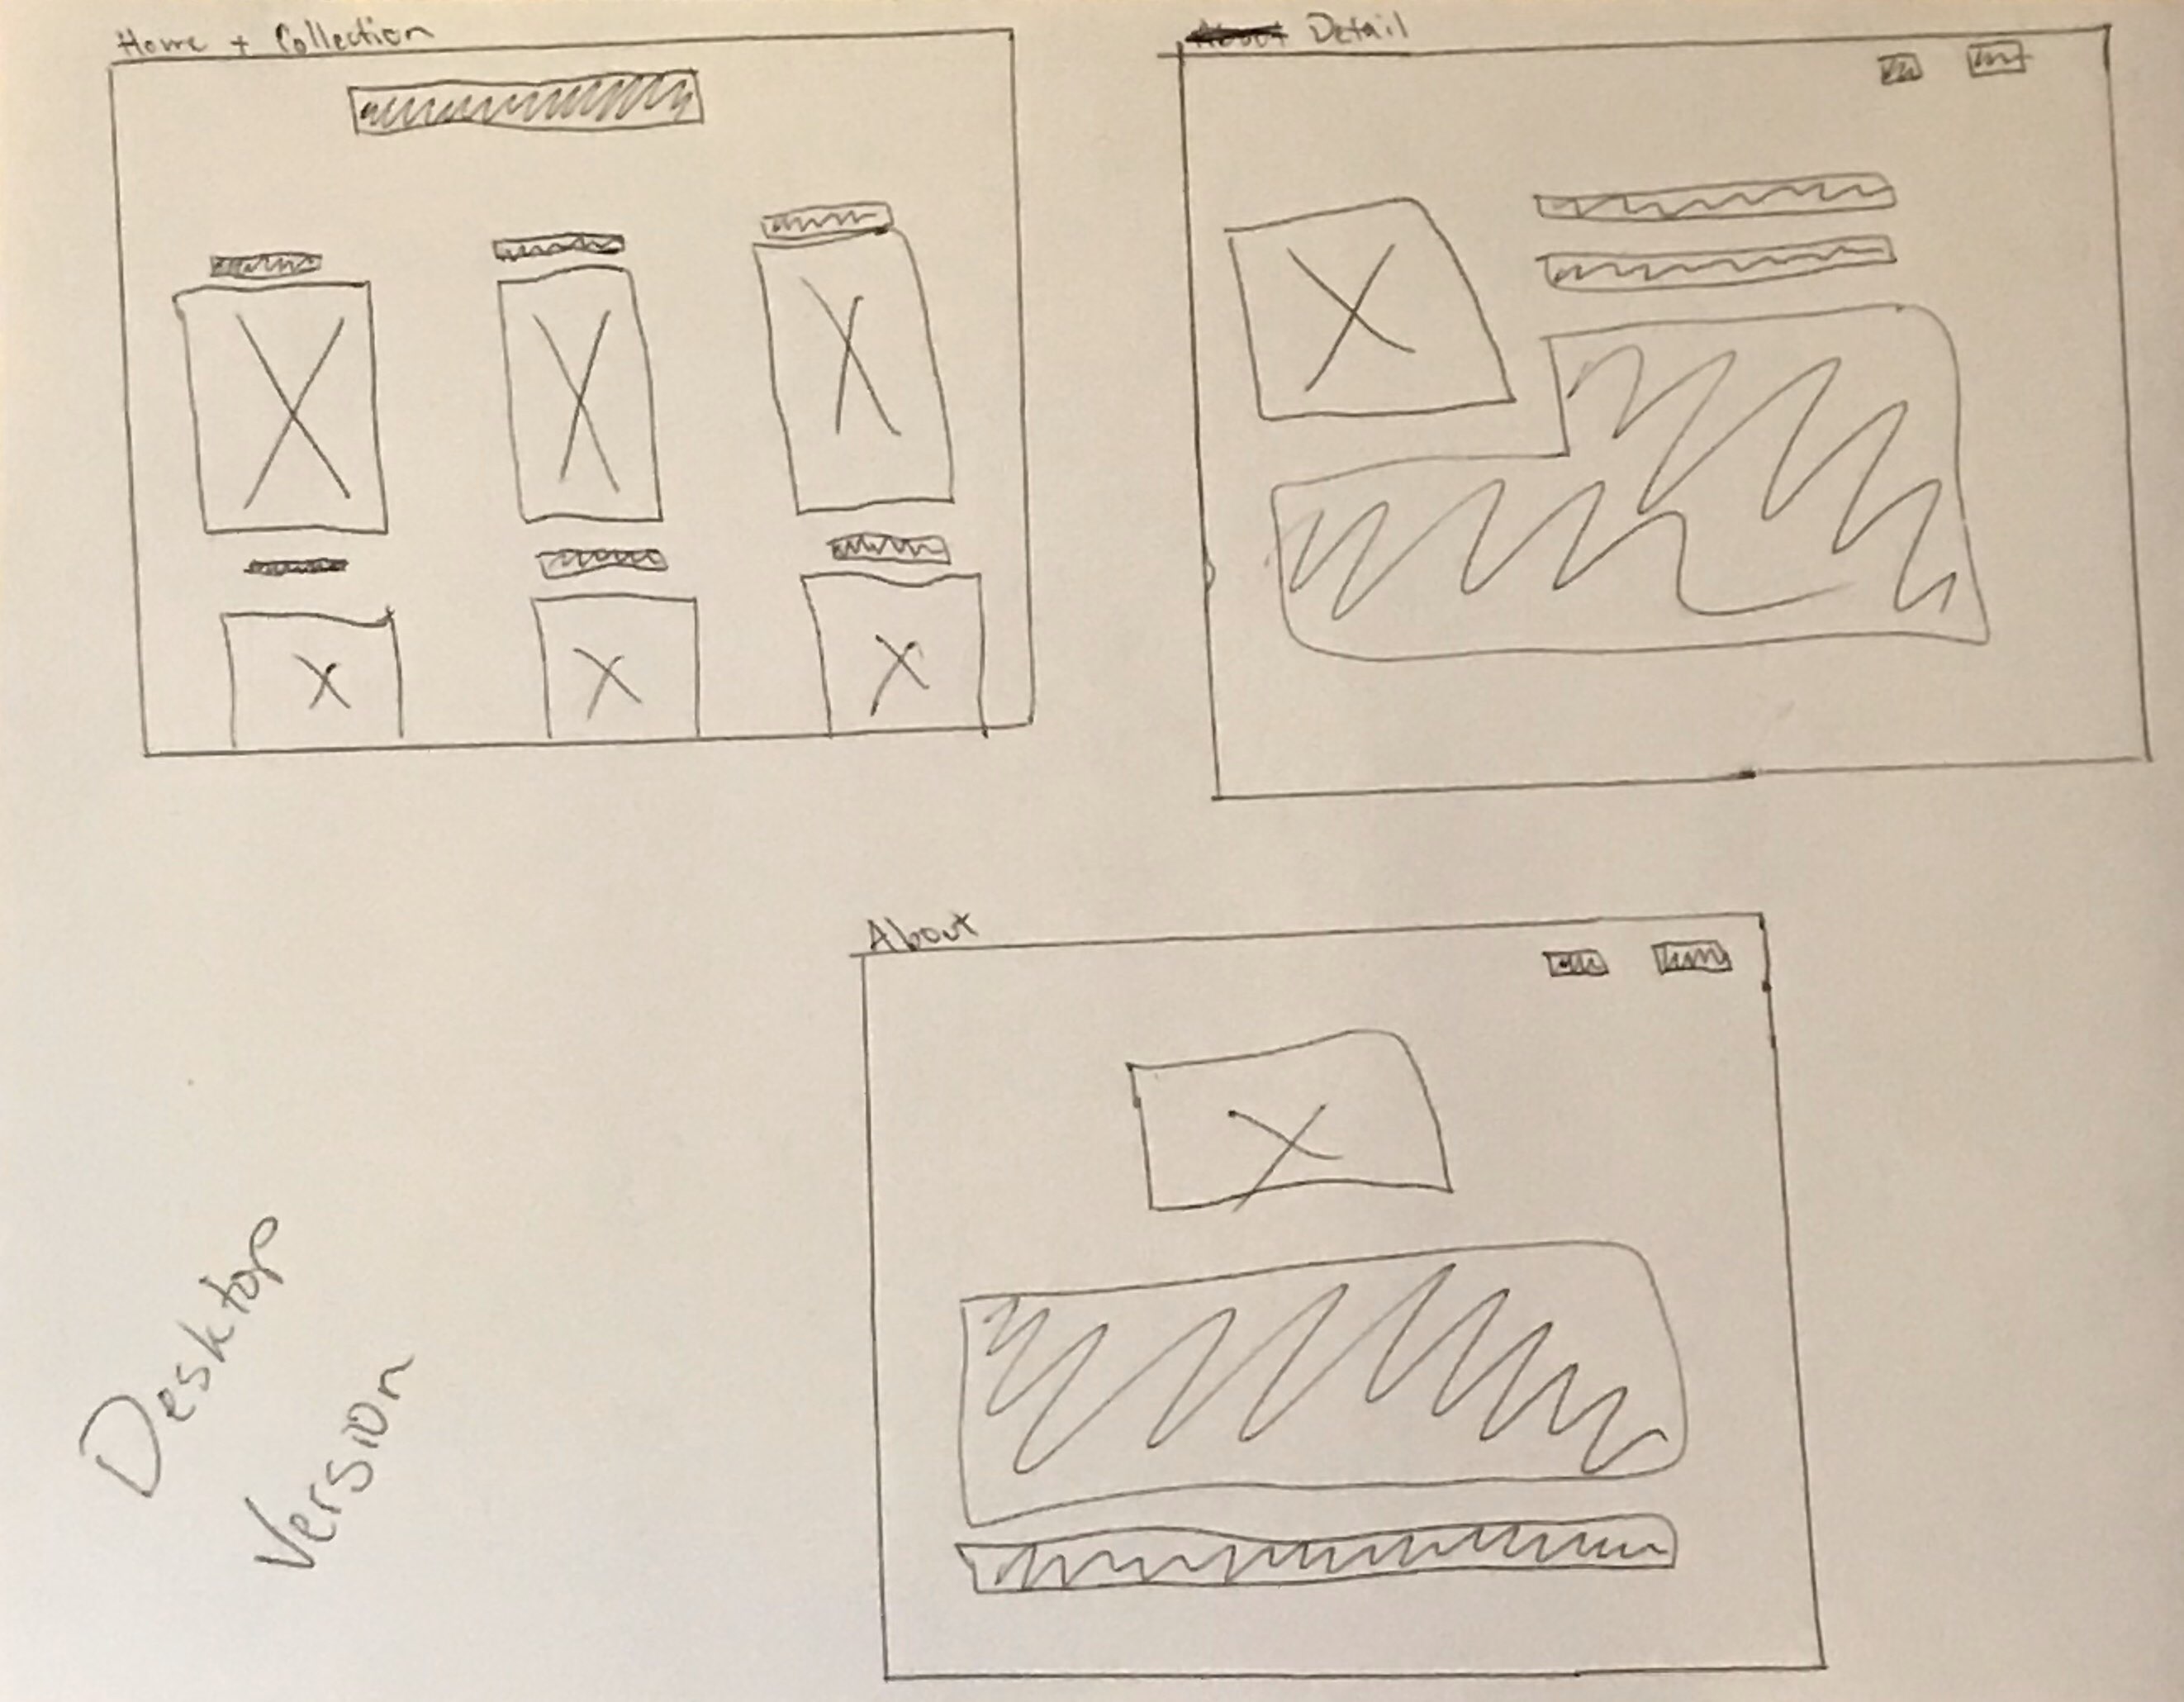 Home + Collection
Detail
About
Desktop
Version